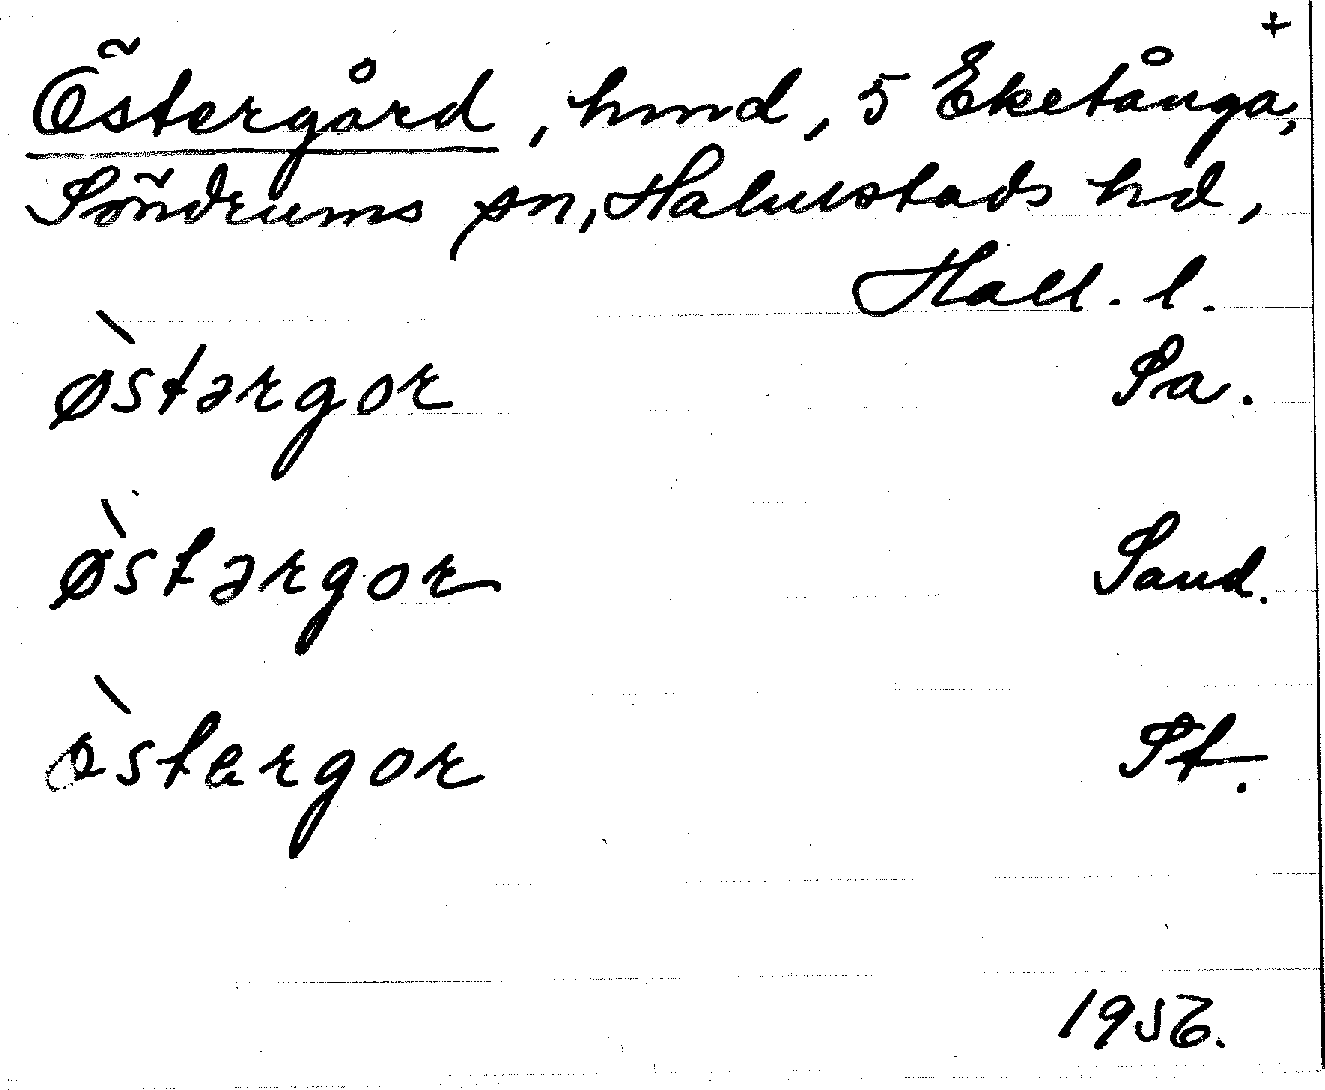 +
Östergård, hmd, 5 Eketånga,
Söndrums sn, Halmstads hd,
Hall. l.
ø̀stərgor Sa.
ø̀stərgor Sand.
ò̀stergor St.
1956.